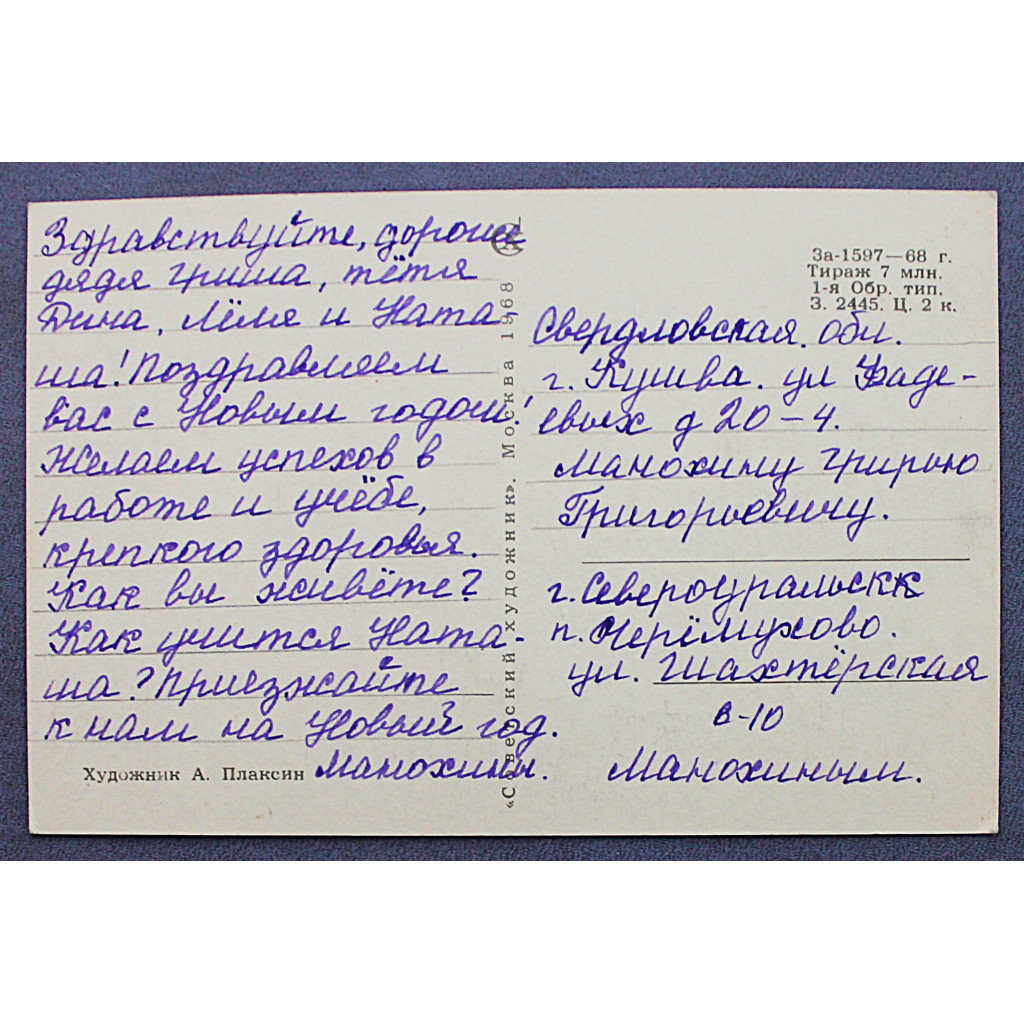 Здравствуйте, дорогие
дядя Гриша, тётя
Дина, Лёля и Ната-
ша! Поздравляем
вас с Новым годом!
Желаем успехов в
работе и учёбе,
крепкого здоровья.
Как вы живёте?
Как учится Ната-
ша? Приезжайте
к нам на Новый год.
Художник А. Плаксин
Манохины.
«Советский художник». Москва 1968
За-1597—68 г.
Тираж 7 млн.
1-я Обр. тип.
З. 2445. Ц. 2 к.
Свердловская обл.
г. Кушва. ул Фаде-
евых д 20-4.
Манохину Григрию
Григорьевичу.
г. Североуральск
п. Черёмухово.
ул. Шахтёрская
8-10
Манохиным.